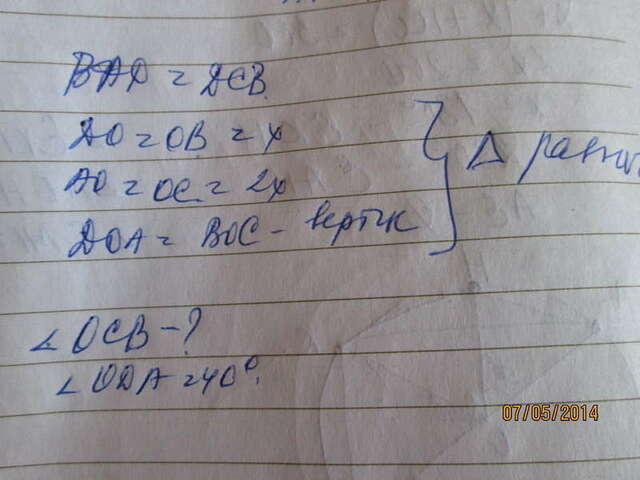 BAD = DCB
DO = OB = x
AO = OC = 2x
DOA = BOC - вертик
Δ равны
∠ OCB - ?
∠ ODA = 40°.
07/05/2014